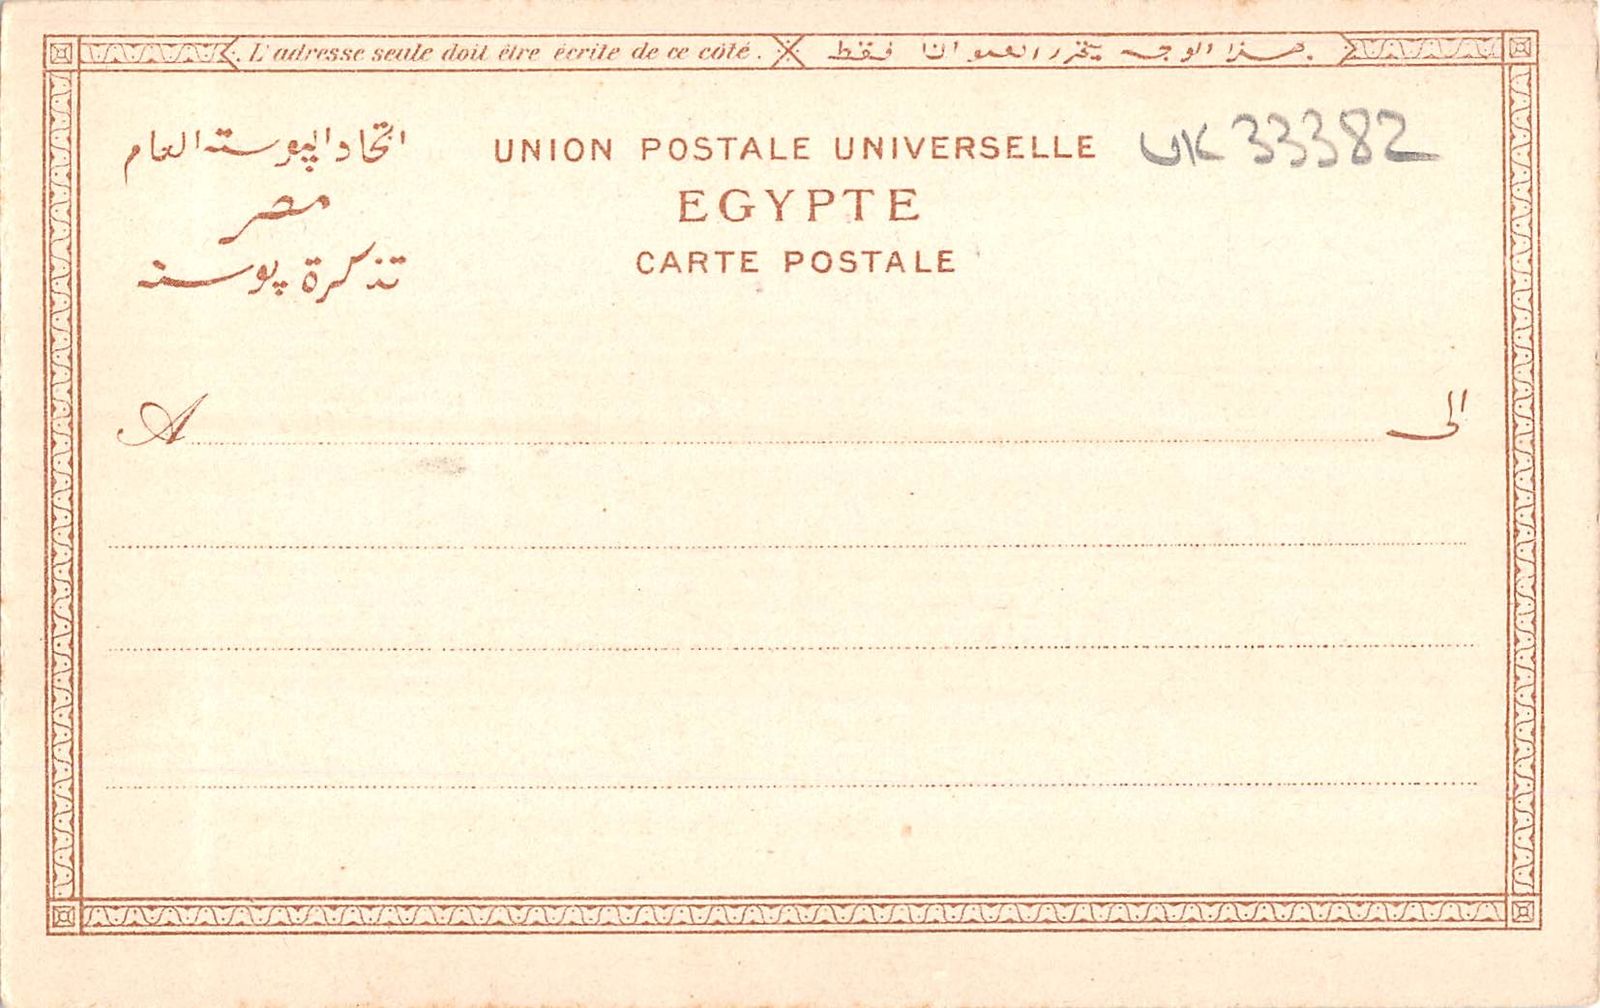 L'adresse seule doit être écrite de ce côté. هذا الوجه يتحرر العنوان فقط
اتحاد الپوسته العام
UNION POSTALE UNIVERSELLE UK 33382
مصر
EGYPTE
تذكرة پوسته
CARTE POSTALE
A الى